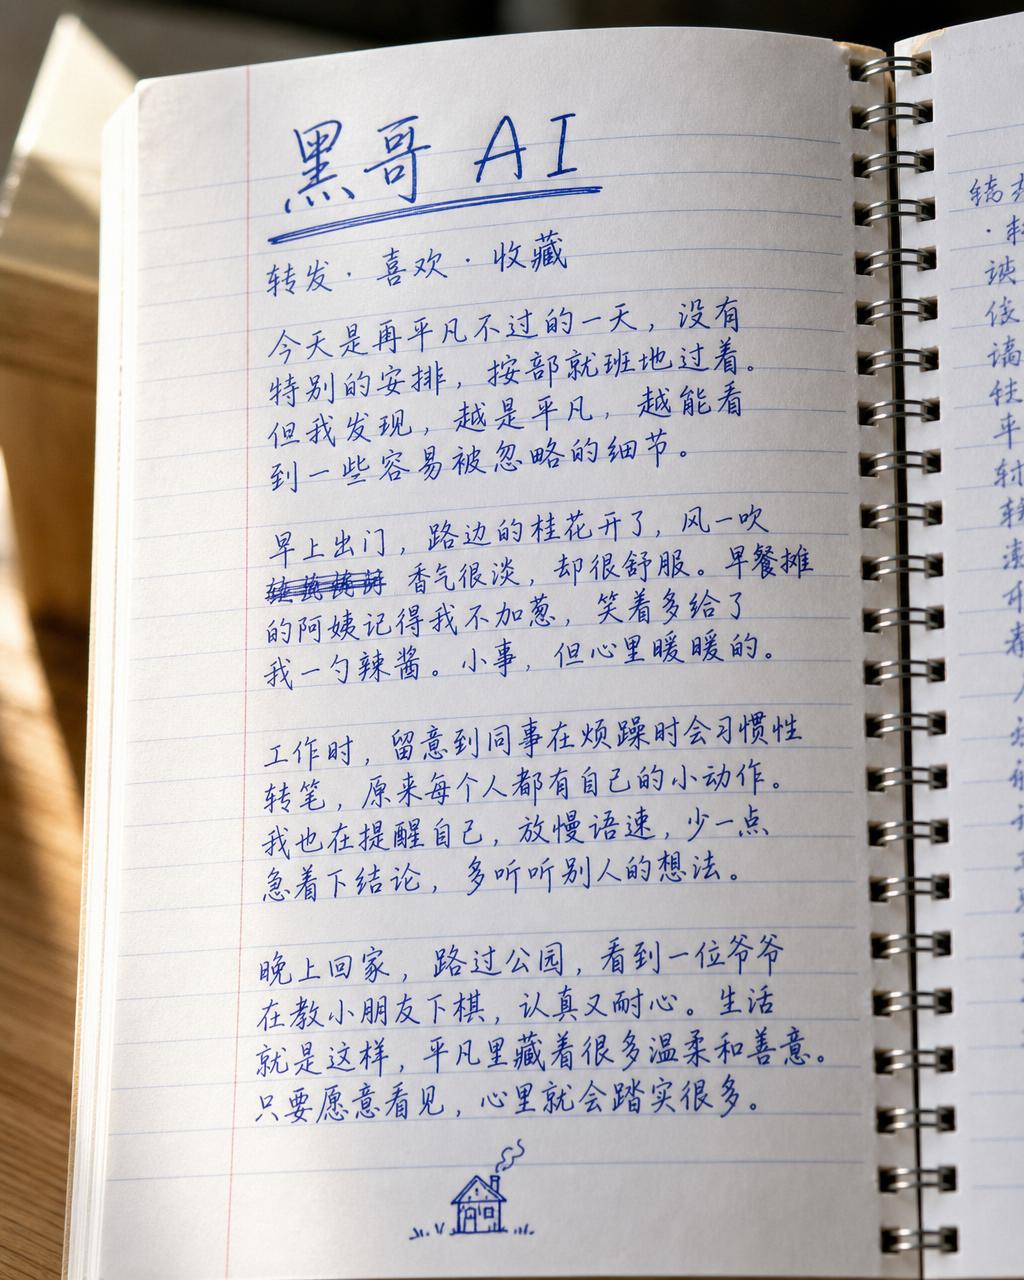 黑哥 AI
转发 · 喜欢 · 收藏
今天是再平凡不过的一天，没有
特别的安排，按部就班地过着。
但我发现，越是平凡，越能看
到一些容易被忽略的细节。
早上出门，路边的桂花开了，风一吹
香气很淡，却很舒服。早餐摊
的阿姨记得我不加葱，笑着多给了
我一勺辣酱。小事，但心里暖暖的。
工作时，留意到同事在烦躁时会习惯性
转笔，原来每个人都有自己的小动作。
我也在提醒自己，放慢语速，少一点
急着下结论，多听听别人的想法。
晚上回家，路过公园，看到一位爷爷
在教小朋友下棋，认真又耐心。生活
就是这样，平凡里藏着很多温柔和善意。
只要愿意看见，心里就会踏实很多。